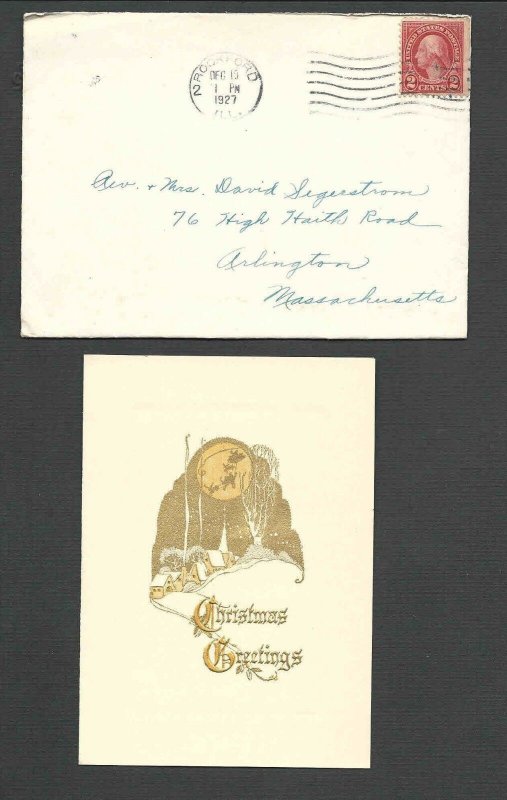 ROCKFORD
DEC 15
1 PM
1927
ILL.
2
UNITED STATES POSTAGE
2 CENTS 2
Rev. + Mrs. David Segerstrom
76 High Haith Road
Arlington
Massachusetts
Christmas
Greetings